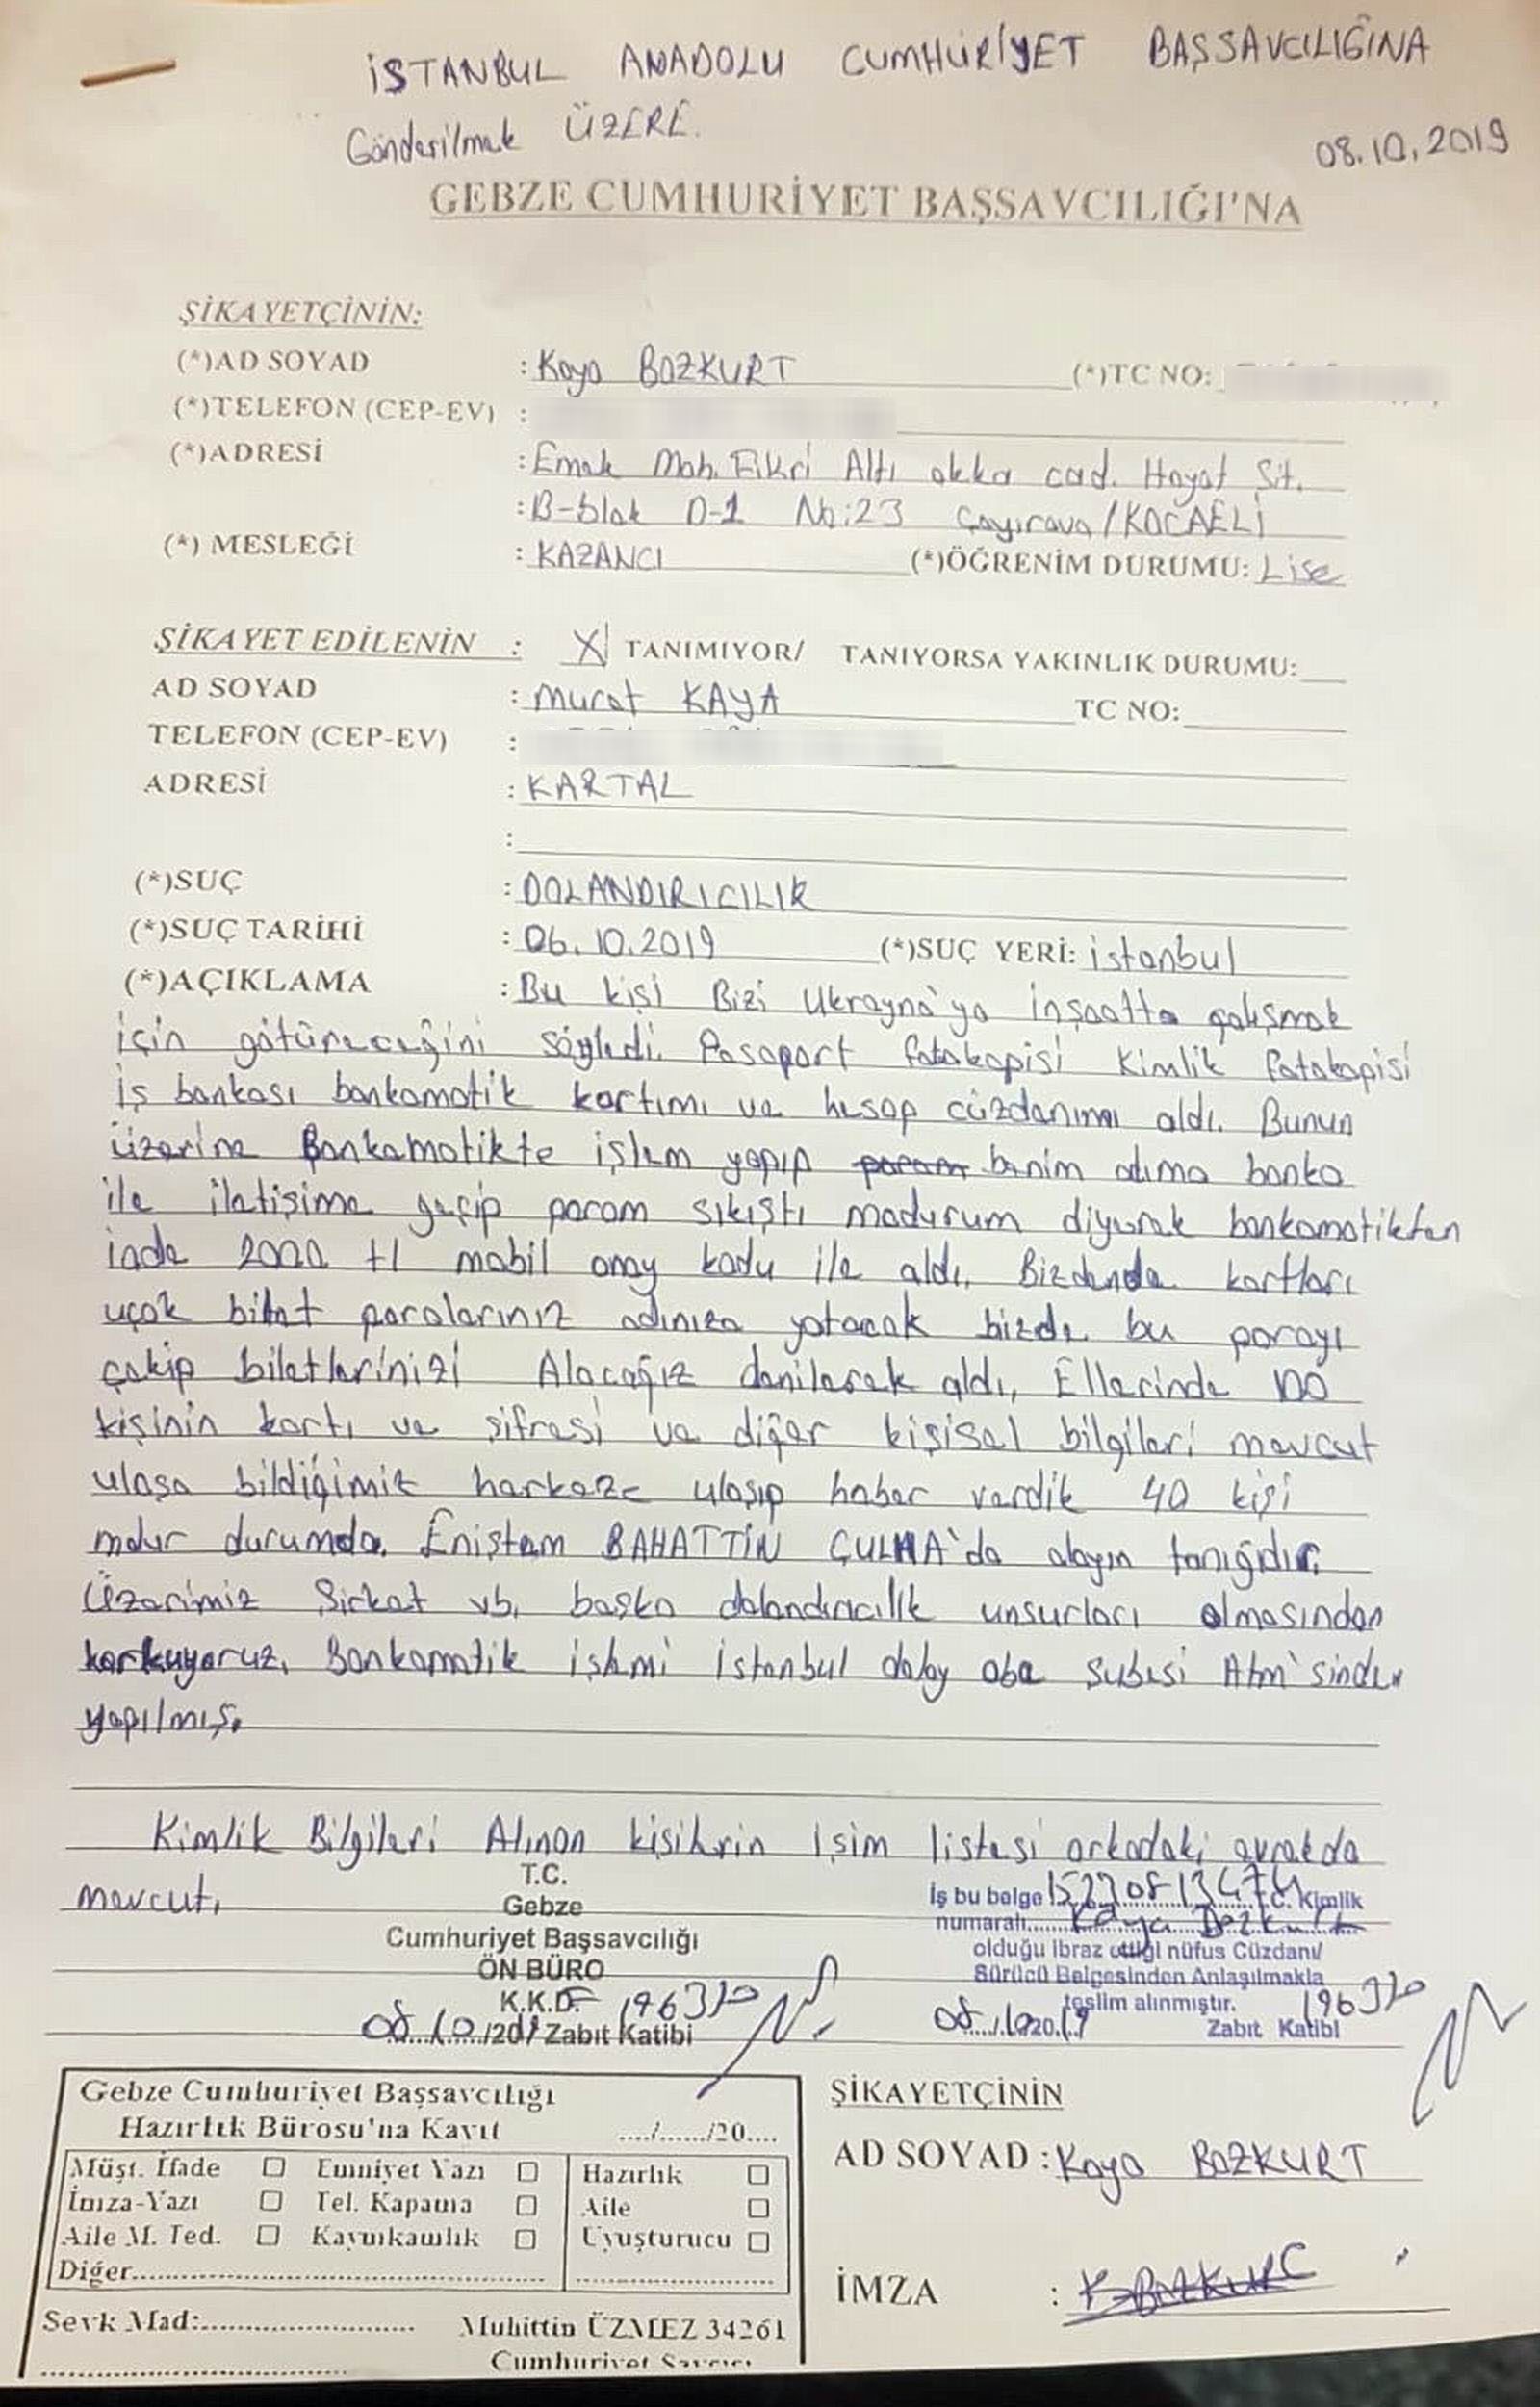 İSTANBUL ANADOLU CUMHURİYET BAŞSAVCILIĞINA
Gönderilmek ÜZERE.
08.10.2019
GEBZE CUMHURİYET BAŞSAVCILIĞI'NA
ŞİKAYETÇİNİN:
(*)AD SOYAD : Kaya BOZKURT (*)TC NO:
(*)TELEFON (CEP-EV) :
(*)ADRESİ : Emek Mah. Fikri Altı okka cad. Hayat Sit.
: B-blok D-1 No:23 Çayırova/KOCAELİ
(*) MESLEĞİ : KAZANCI (*)ÖĞRENİM DURUMU: Lise
ŞİKAYET EDİLENİN : X TANIMIYOR/ TANIYORSA YAKINLIK DURUMU:
AD SOYAD : Murat KAYA TC NO:
TELEFON (CEP-EV) :
ADRESİ : KARTAL
:
(*)SUÇ : DOLANDIRICILIK
(*)SUÇ TARİHİ : 06.10.2019 (*)SUÇ YERİ: istanbul
(*)AÇIKLAMA : Bu kişi Bizi Ukrayna'ya İnşaatta çalışmak
için götüreceğini söyledi. Pasaport fotokopisi Kimlik fotokopisi
iş bankası bankamatik kartımı ve hesap cüzdanımı aldı. Bunun
üzerine Bankamatikte işlem yapıp param benim adıma banka
ile iletişime geçip param sıkıştı mağdurum diyerek bankamatikten
iade 2000 tl mobil onay kodu ile aldı. Bizdende kartları
uçak bilet paralarınız adınıza yatacak bizde bu parayı
çekip biletlerinizi Alacağız denilerek aldı, Ellerinde 100
kişinin kartı ve şifresi ve diğer kişisel bilgileri mevcut
ulaşa bildiğimiz herkeze ulaşıp haber verdik 40 kişi
durumda. Eniştem BAHATTİN ÇULHA'da olayın tanığıdır.
Üzerimiz Şirket vb. başka dolandırıcılık unsurları olmasından
korkuyoruz. Bankamatik işlemi istanbul dalay oba şubesi Atm'sinden
yapılmış.
Kimlik Bilgileri Alınan kişilerin İşim listesi arkadaki evrakda
mevcut.
T.C.
Gebze
Cumhuriyet Başsavcılığı
ÖN BÜRO
K.K.D.
08.10/2019 Zabıt Katibi
İş bu belge 15227081347 T.C. Kimlik
numaralı Kaya Bozkurt
olduğu ibraz ettiği nüfus Cüzdanı/
Sürücü Belgesinden Anlaşılmakla
teslim alınmıştır.
08./10/2019 Zabıt Katibi
Gebze Cumhuriyet Başsavcılığı
Hazırlık Bürosu'na Kayıt ..../....../20....
Müşt. İfade □ Emniyet Yazı □ Hazırlık □
İmza-Yazı □ Tel. Kapama □ Aile □
Aile M. Ted. □ Kaymkamlık □ Uyuşturucu □
Diğer
Sevk Mad:
Muhittin ÜZMEZ 34261
Cumhuriyet Savcısı
ŞİKAYETÇİNİN
AD SOYAD : Kaya BOZKURT
İMZA : K BOZKURT